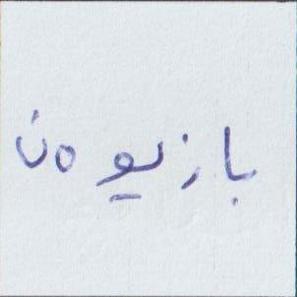 بازیوەن